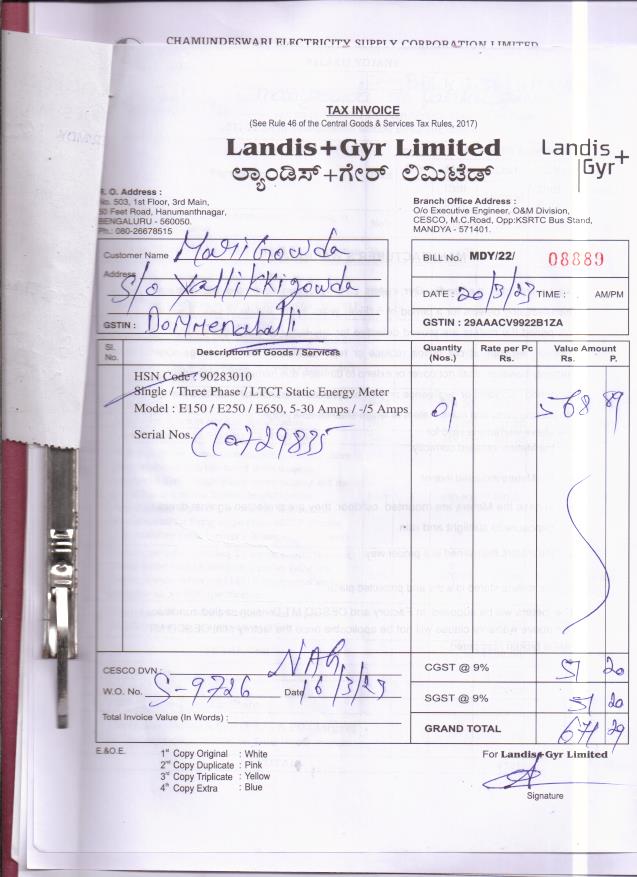 CHAMUNDESWARI ELECTRICITY SUPPLY CORPORATION LIMITED
TAX INVOICE
(See Rule 46 of the Central Goods & Services Tax Rules, 2017)
Landis+Gyr Limited
ಲ್ಯಾಂಡಿಸ್+ಗೇರ್ ಲಿಮಿಟೆಡ್
Landis+
Gyr
R. O. Address :
No. 503, 1st Floor, 3rd Main,
50 Feet Road, Hanumanthnagar,
BENGALURU - 560050.
Ph.: 080-26678515
Branch Office Address :
O/o Executive Engineer, O&M Division,
CESCO, M.C.Road, Opp:KSRTC Bus Stand,
MANDYA - 571401.
Customer Name Marigowda
Address S/o Yallikkigowda
GSTIN :
BILL No. MDY/22/ 08889
DATE : 20/3/23 TIME : AM/PM
GSTIN : 29AAACV9922B1ZA
Sl. No. Description of Goods / Services Quantity (Nos.) Rate per Pc Rs. Value Amount Rs. P.
HSN Code : 90283010
Single / Three Phase / LTCT Static Energy Meter
Model : E150 / E250 / E650, 5-30 Amps / -/5 Amps 01 568 89
Serial Nos. CC0729835
CESCO DVN :
W.O. No. S-9726 Date 16/3/23
Total Invoice Value (In Words) :
CGST @ 9% 51 20
SGST @ 9% 51 20
GRAND TOTAL 671 29
E.&O.E.
1st Copy Original : White
2nd Copy Duplicate : Pink
3rd Copy Triplicate : Yellow
4th Copy Extra : Blue
For Landis+Gyr Limited
Signature